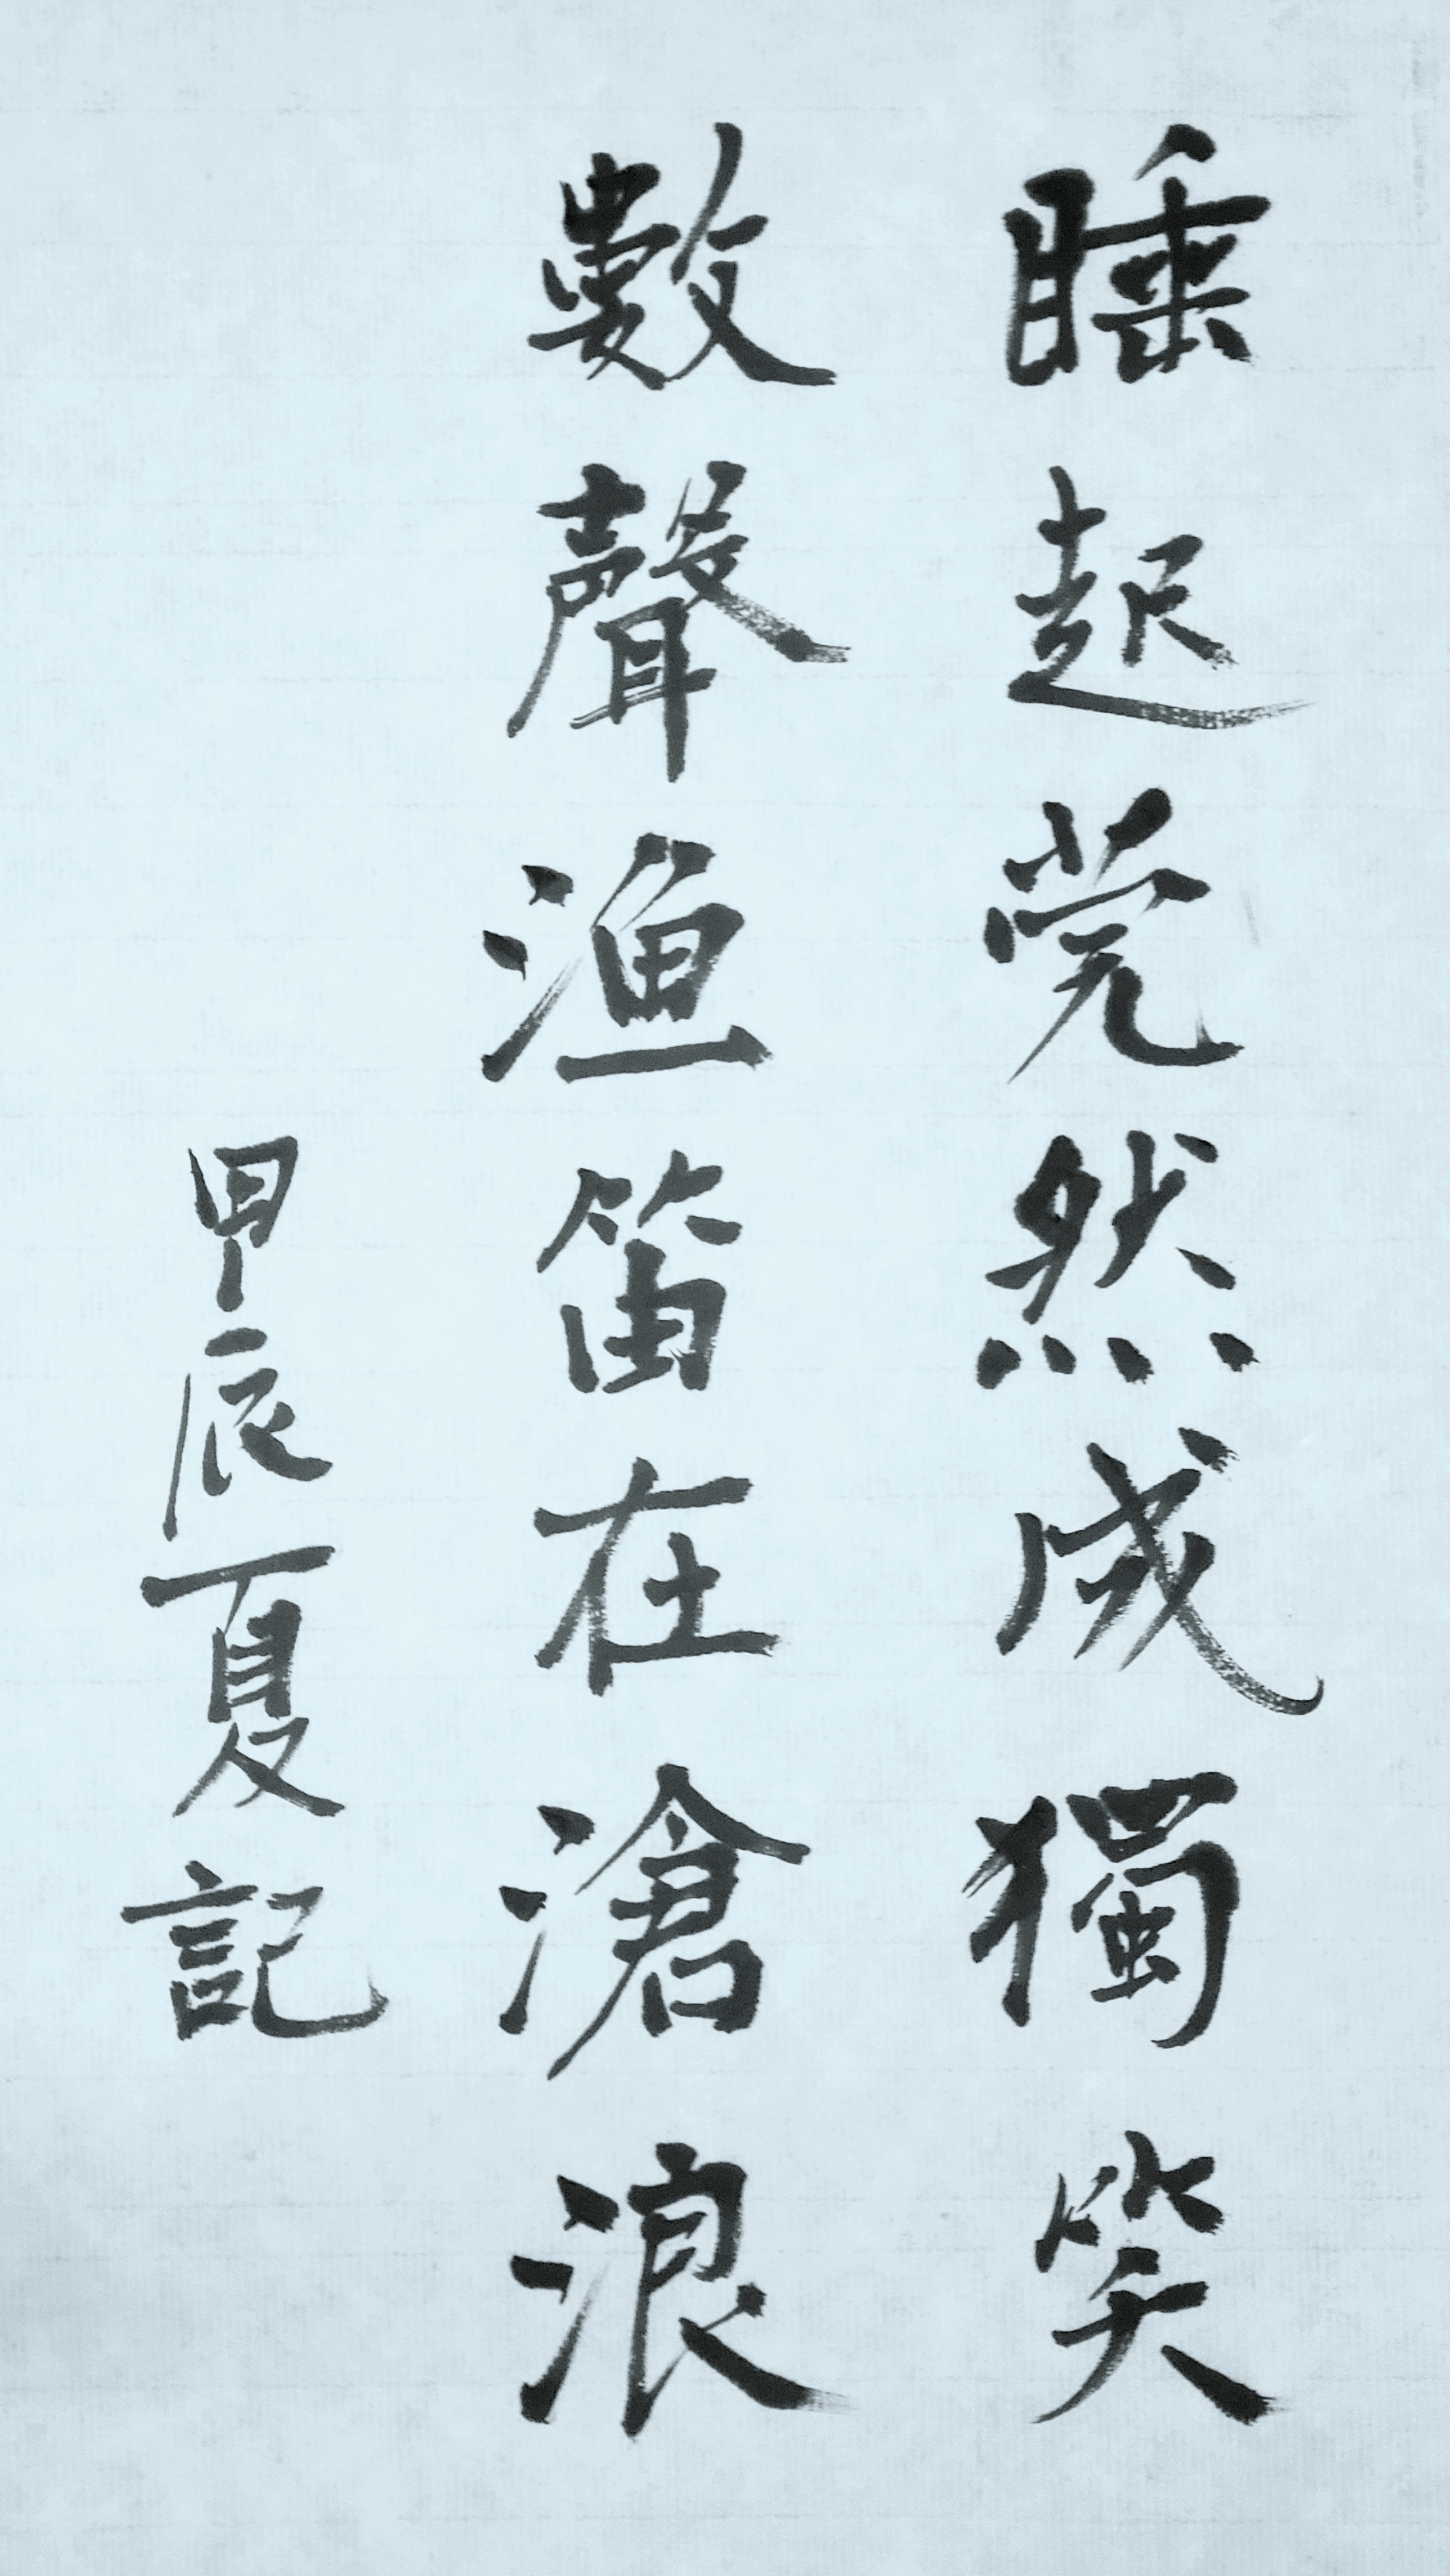 睡起莞然成獨笑
數聲漁笛在滄浪
甲辰夏記